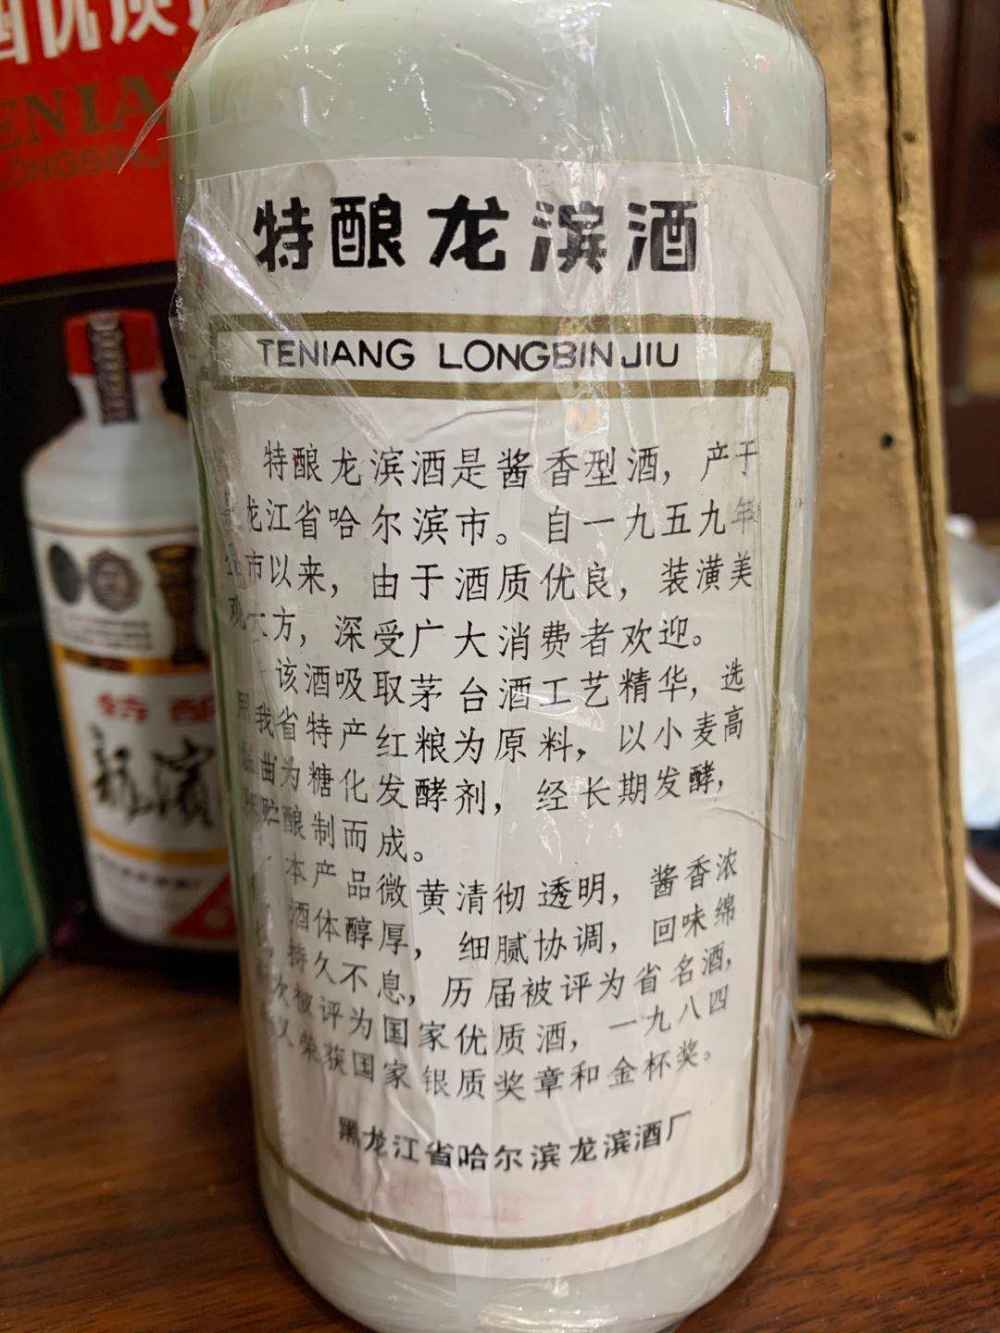 特酿龙滨酒
TENIANG LONGBINJIU
特酿龙滨酒是酱香型酒，产于
龙江省哈尔滨市。自一九五九年
市以来，由于酒质优良，装潢美
观大方，深受广大消费者欢迎。
该酒吸取茅台酒工艺精华，选
用我省特产红粮为原料，以小麦高
温曲为糖化发酵剂，经长期发酵，
贮酿制而成。
本产品微黄清彻透明，酱香浓
酒体醇厚，细腻协调，回味绵
持久不息，历届被评为省名酒，
次被评为国家优质酒，一九八四
又荣获国家银质奖章和金杯奖。
黑龙江省哈尔滨龙滨酒厂
优质
ENIA
LONGBINJ
特酿
龙滨